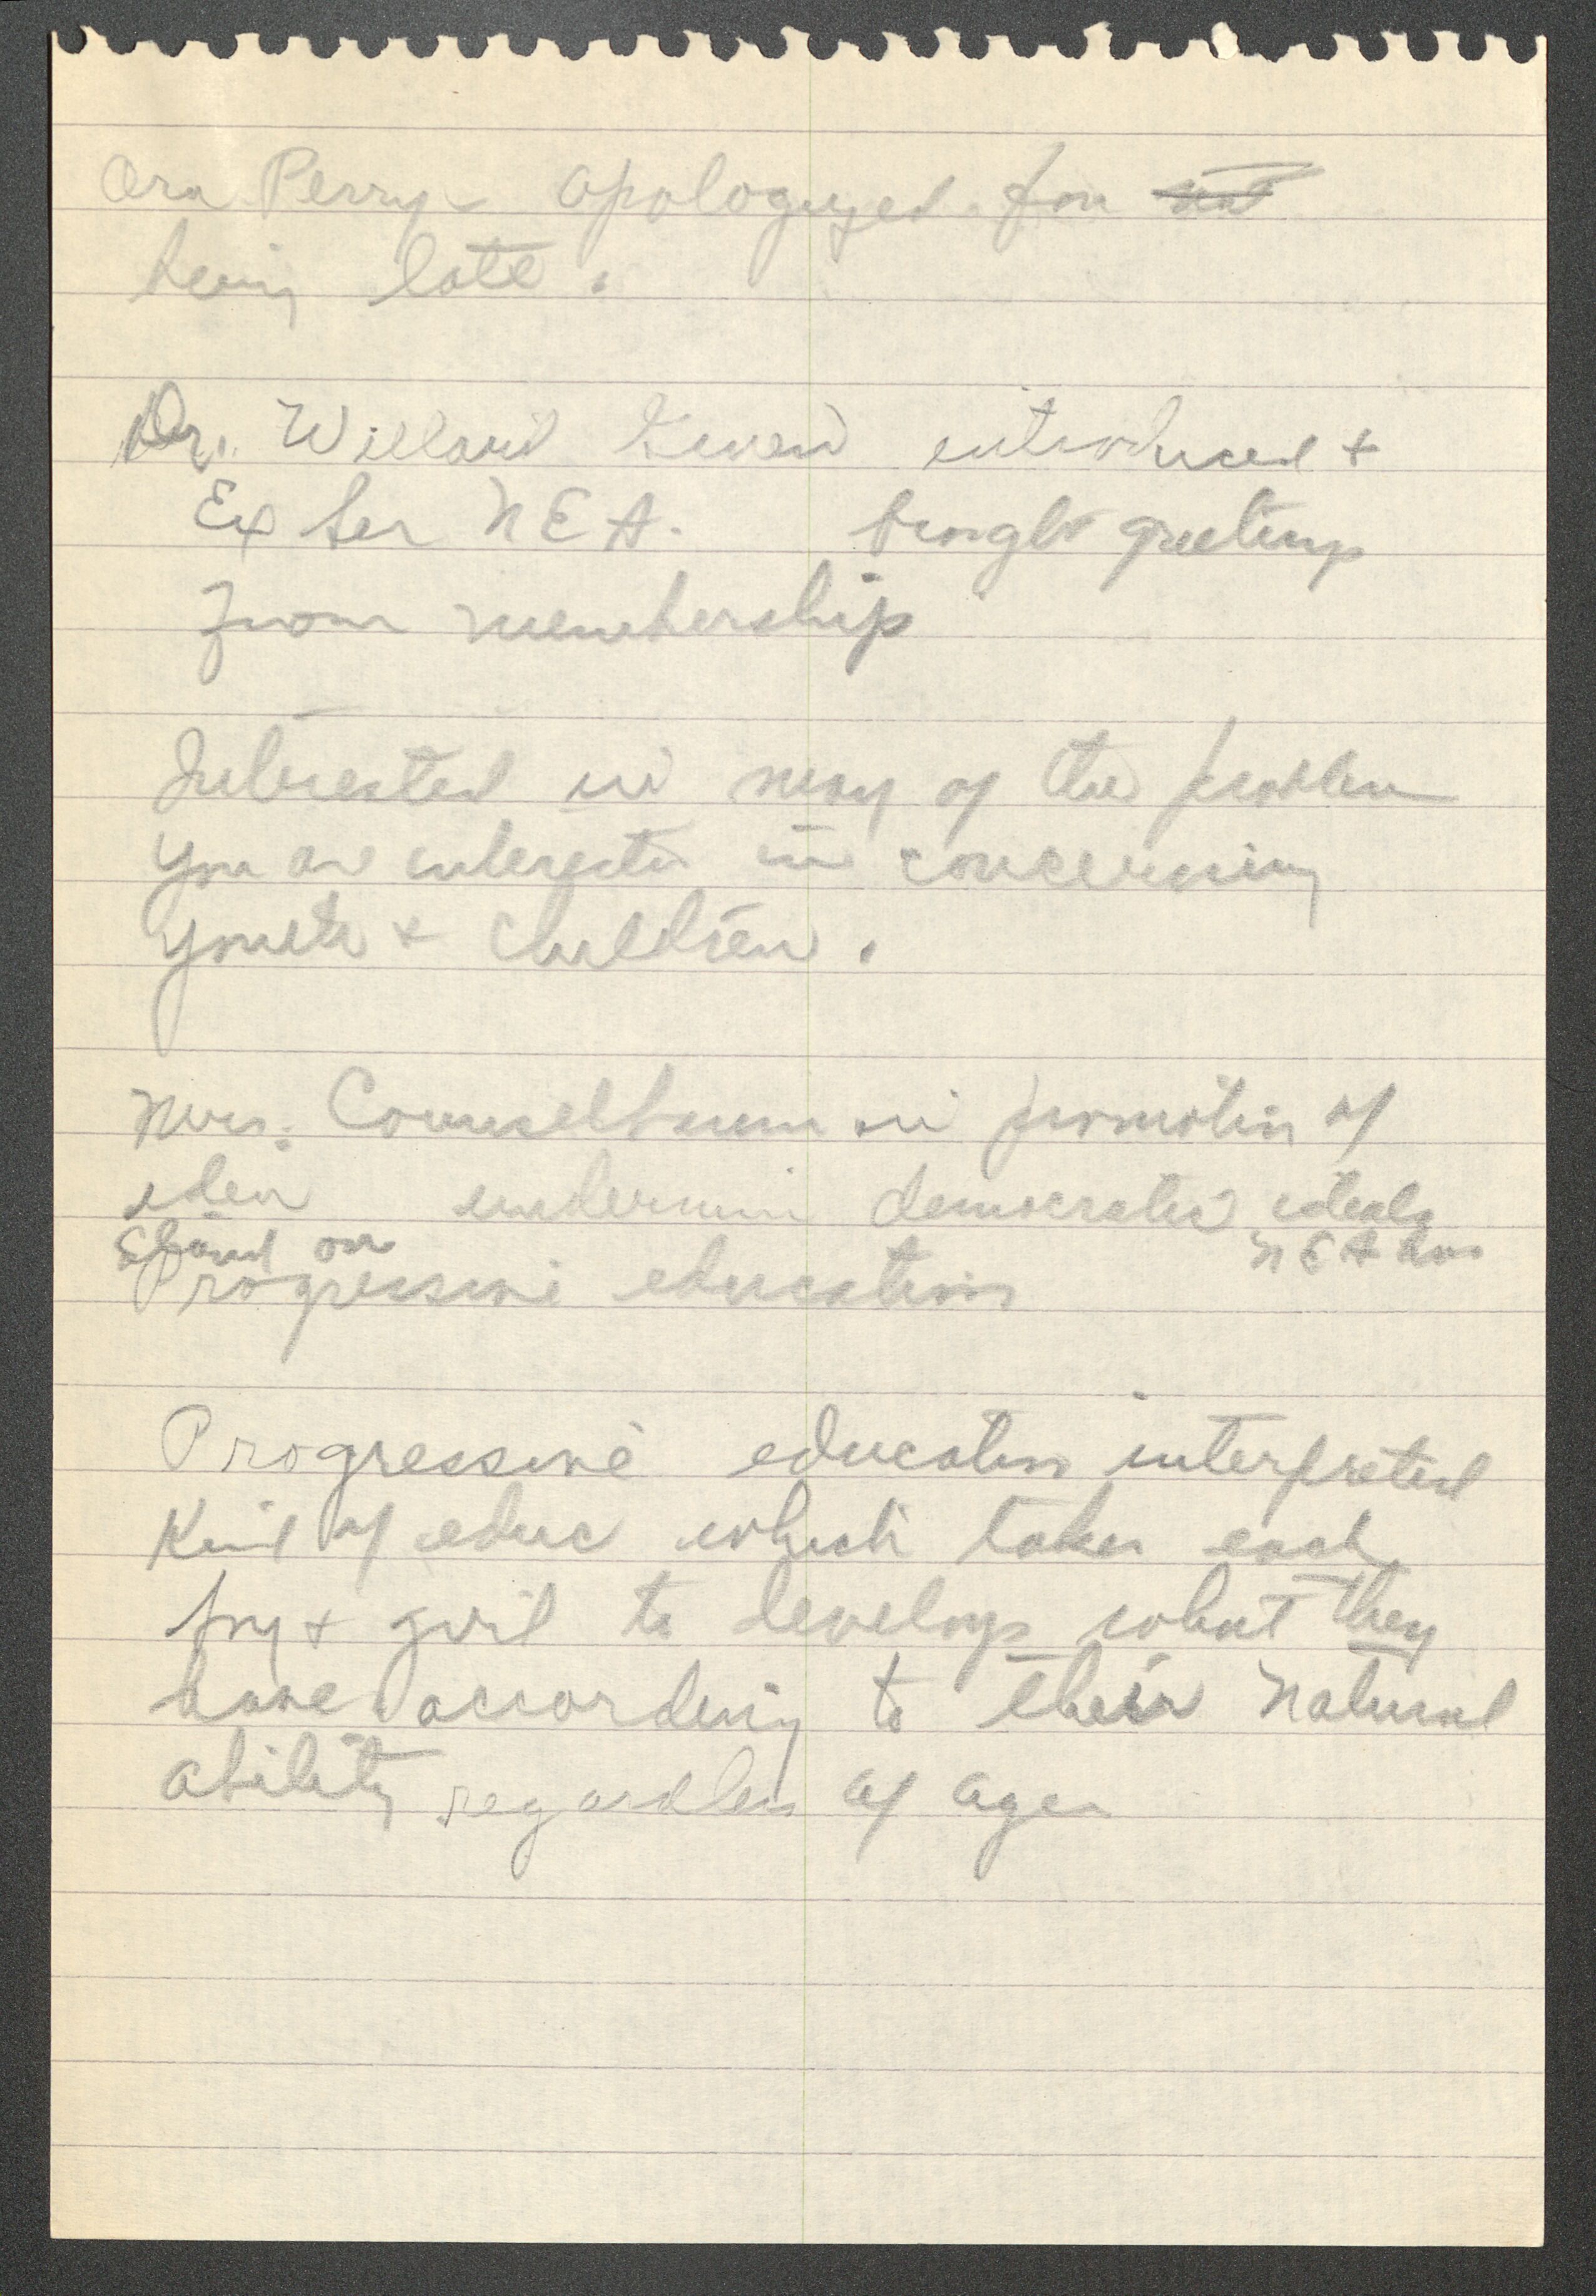 Ora Perry apologyzed for not
being late.
Dr. Willard Given introduced +
Ex Sec N E A. brought greetings
from membership
Interested in many of the problem
you are interested in concerning
youth + children.
Mrs. in promotion of
idea undermine democratic ideals
N E A has
on
Progressive education
Progressive education interpreted
Kind of educ which takes each
boy + girl to develop what they
have according to their natural
ability regardless of age